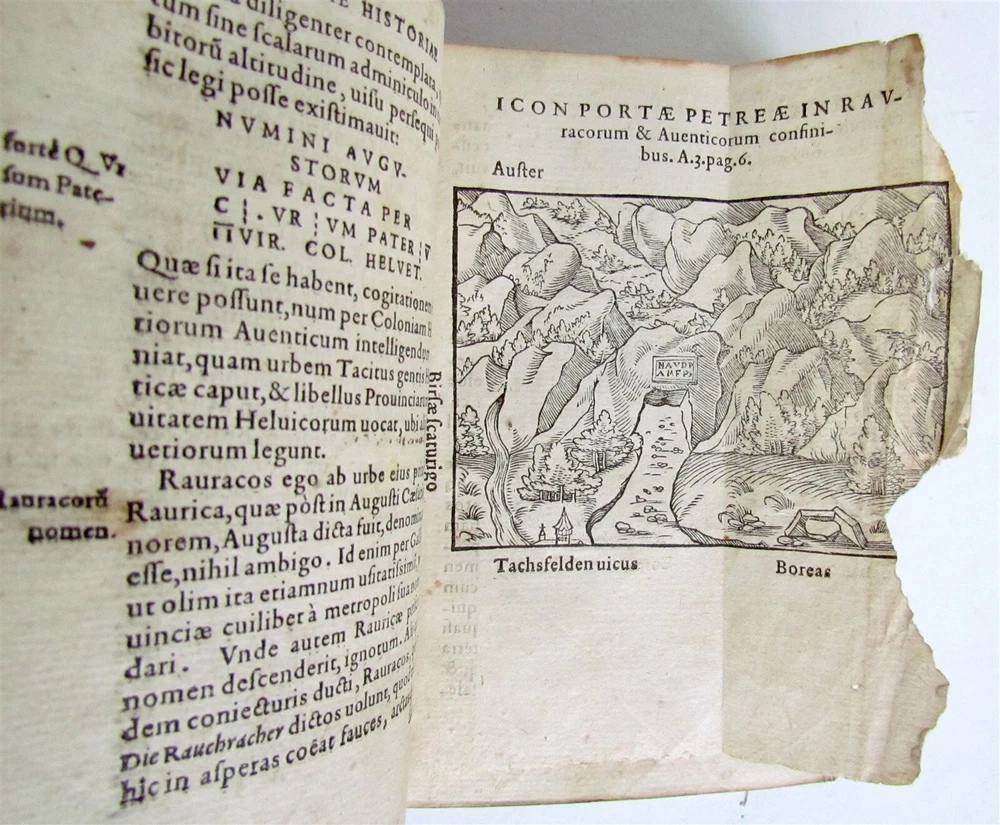 HISTORIAE
diligenter contemplata,
tum sine scalarum adminiculo in
bitorū altitudine, uisu persequi
sic legi posse existimauit:
NVMINI AVGV-
STORVM
VIA FACTA PER
C ¦. VR ¦ VM PATER ¦ V̄
I̅I̅VIR. COL. HELVET.
fortè Q. Vr
sum Pate-
rium.
Quæ si ita se habent, cogitatione
uere possunt, num per Coloniam
tiorum Auenticum intelligend
niat, quam urbem Tacitus gentis
ticæ caput, & libellus Prouincia
uitatem Heluicorum uocat, ubi
uetiorum legunt.
Rauracos ego ab urbe eius
Raurica, quæ pòst in Augusti Cæ
norem, Augusta dicta fuit, denom
esse, nihil ambigo. Id enim per
ut olim ita etiamnum usitatissim
uinciæ cuilibet à metropoli sua
dari. Vnde autem Rauricæ
nomen descenderit, ignotum.
dem coniecturis ducti, Rauracos,
Die Rauchracher dictos uolunt,
hic in asperas coëat fauces,
Rauracorū
nomen.
ICON PORTÆ PETREÆ IN RAV-
racorum & Auenticorum confini-
bus. A.3. pag.6.
Auster
Birsæ scaturigo
NAVDP
Tachsfelden uicus
Boreas